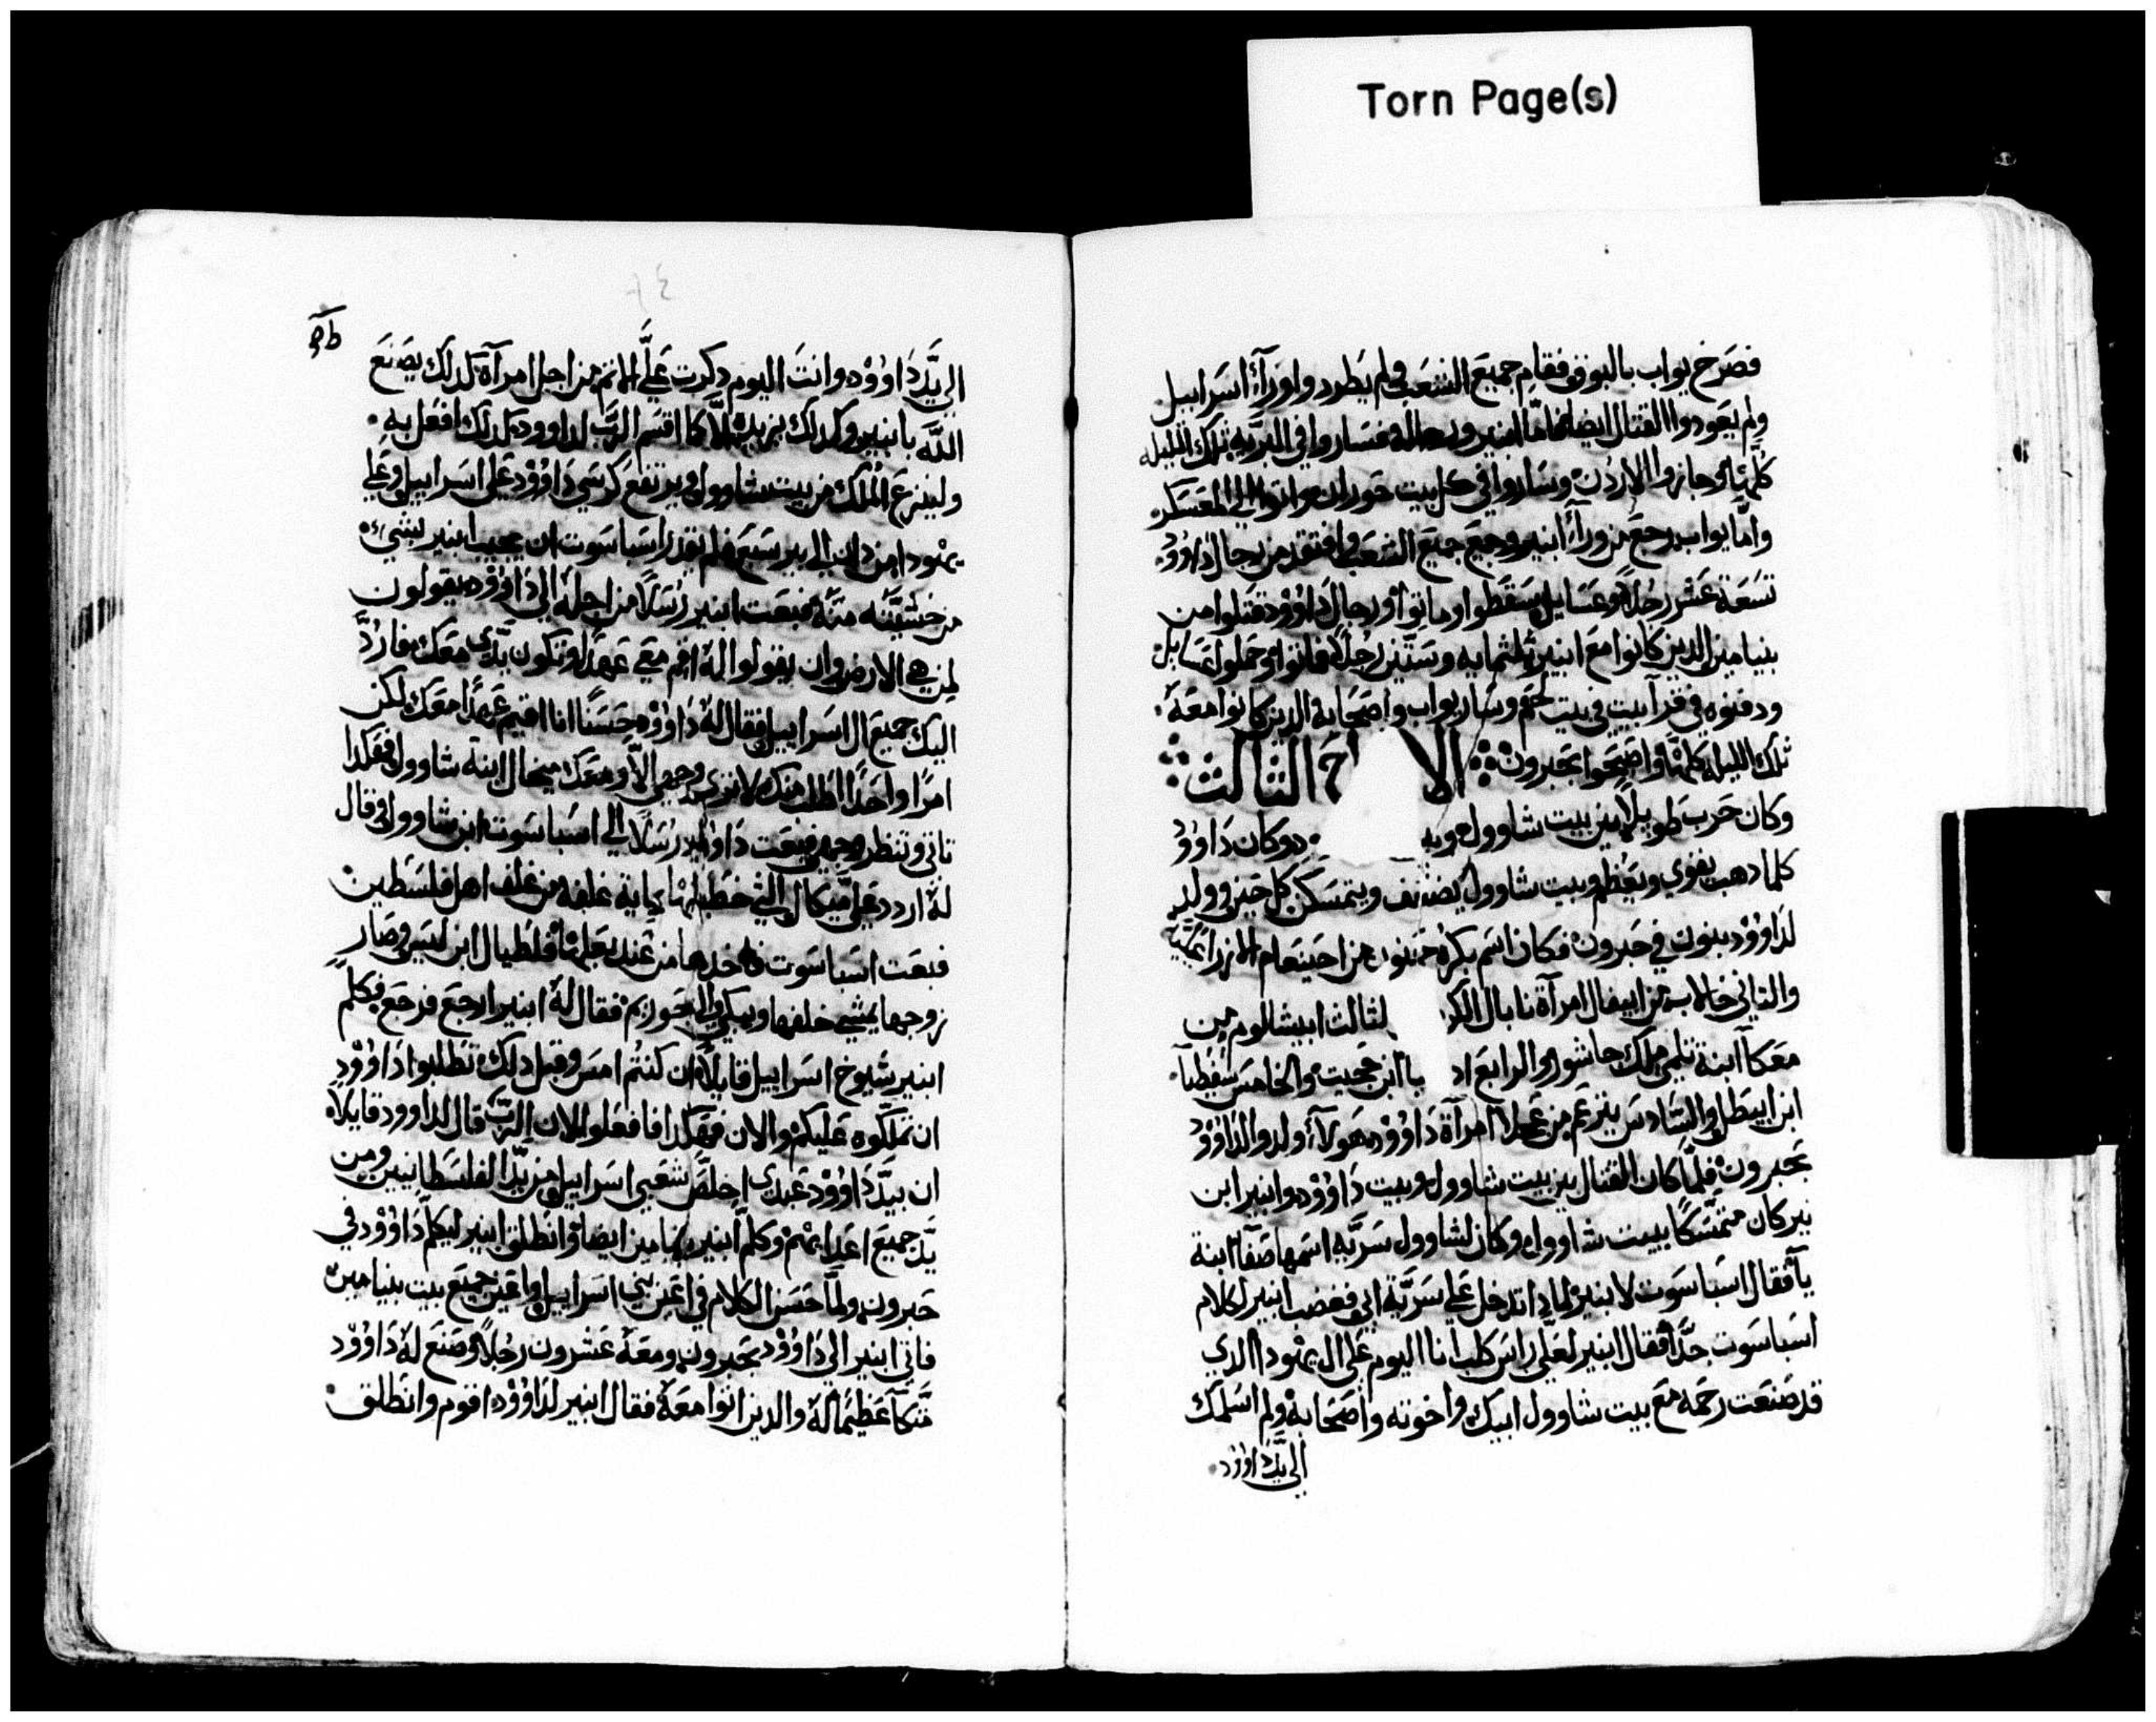 Torn Page(s)
فصرخ يواب بالبوق فقام جميع الشعب ولم يطردوا ورآء اسراييل
ولم يعودوا القتال ايضا فاما ابنير ورجاله فساروا في البريه تلك الليله
كلها وجازوا الاردن وساروا في كل بيت حوران واتوا الي المعسكر
واما يواب رجع من ورآء ابنير وجمع جميع الشعب وافتقد من رجال داوود
تسعة عشر رجلا وعسايل سقطوا وماتوا ورجال داوود قتلوا من
بنيامين الدين كانوا مع ابنير ثلثمايه وستين رجلا ماتوا وحملوا عسايل
ودفنوه في قبر ابيه في بيت لحم وسار يواب واصحابه الدين كانوا معه
تلك الليله كلها واصبحوا بحبرون الا ح الثالث
وكان حرب طويلا بين بيت شاوول وبيـ د وكان داوود
كلما دهب يقوي ويعظم وبيت شاوول يضعف ويتمسكن كل حين وولد
لداوود بنون في حبرون فكان اسم بكره حمنون من احينعام
والتاني حالاب من ابيغال امرآة نابال الكر لثالث ابيشالوم من
معكا ابنة تلمي ملك جاشور والرابع اد يا ابن حجيت والخامس سفطيا
ابن ابيطل والسادس يترعم من عجلا امرآة داوود هولآء ولدوا لداوود
بحبرون فلما كان القتال بين بيت شاوول وبيت داوود وابنير ابن
نير كان متمسكا ببيت شاوول وكان لشاوول سريه اسمها صفا ابنة
يآ فقال اسباسوت لابنير لمادا تدخل علي سرية ابي فغضب ابنير لكلام
اسباسوت جدا فقال ابنير لعلي راس كلب انا اليوم علي ال يهودا الدي
قد صنعت رحمه مع بيت شاوول ابيك واخوته واصحابه ولم اسلمك
الي يد داوود
الي يد داوود وانت اليوم دكرت علي الاتم من اجل امرآة كدلك يصنع
الله بابنير وكدلك يزيده الا كما اقسم الرب لداوود كدلك افعل به
ولينزع الملك من بيت شاوول ويرتفع كرسي داوود علي اسراييل وعلي
يهودا من دان الي بير سبع فلم يقدر اسباسوت ان يجيب ابنير بشي
من خشيته منه فبعت ابنير رسلا من اجله الي داوود يقولون
لمن هي الارض وان يقولوا له اقم معي عهدا وتكون يدي معك فارد
اليك جميع ال اسراييل فقال له داوود حسنا انا اقيم عهدا معك لكن
امرا واحدا اطلب منك لا تري وجهي الا ومعك ميخال ابنة شاوول فهكدا
تاتي وتنظر وجهي فبعت داوود رسلا الي اسباسوت ابن شاوول وقال
له اردد علي ميكال التي خطبتها بماية غلفه من غلف اهل فلسطين
فبعت اسباسوت فاخدها من عند بعلها فلطيال ابن ليس وصار
زوجها يمشي خلفها ويبكي الي حوريم فقال له ابنير ارجع فرجع فكلم
ابنير شيوخ اسراييل قايلا ان كنتم امس وقبل دلك تطلبوا داوود
ان تملكوه عليكم والان فهكدا فافعلوا لان الرب قال لداوود قايلا
ان بيد داوود عبدي اخلص شعبي اسراييل من يد الفلسطانيين ومن
يد جميع اعدايهم وكلم ابنير بنيامين ايضا وانطلق ابنير ليكلم داوود في
حبرون ولما حسن الكلام في اعين بني اسراييل واعين جميع بيت بنيامين
فاتي ابنير الي داوود بحبرون ومعه عشرون رجلا وصنع له داوود
متكآ عظيما له والدين اتوا معه فقال ابنير لداوود اقوم وانطلق